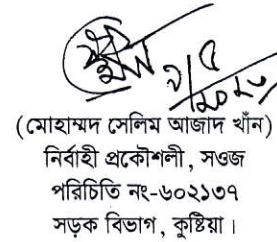 (মোহাম্মদ সেলিম আজাদ খাঁন)
নির্বাহী প্রকৌশলী, সওজ
পরিচিতি নং-৬০২১৩৭
সড়ক বিভাগ, কুষ্টিয়া।